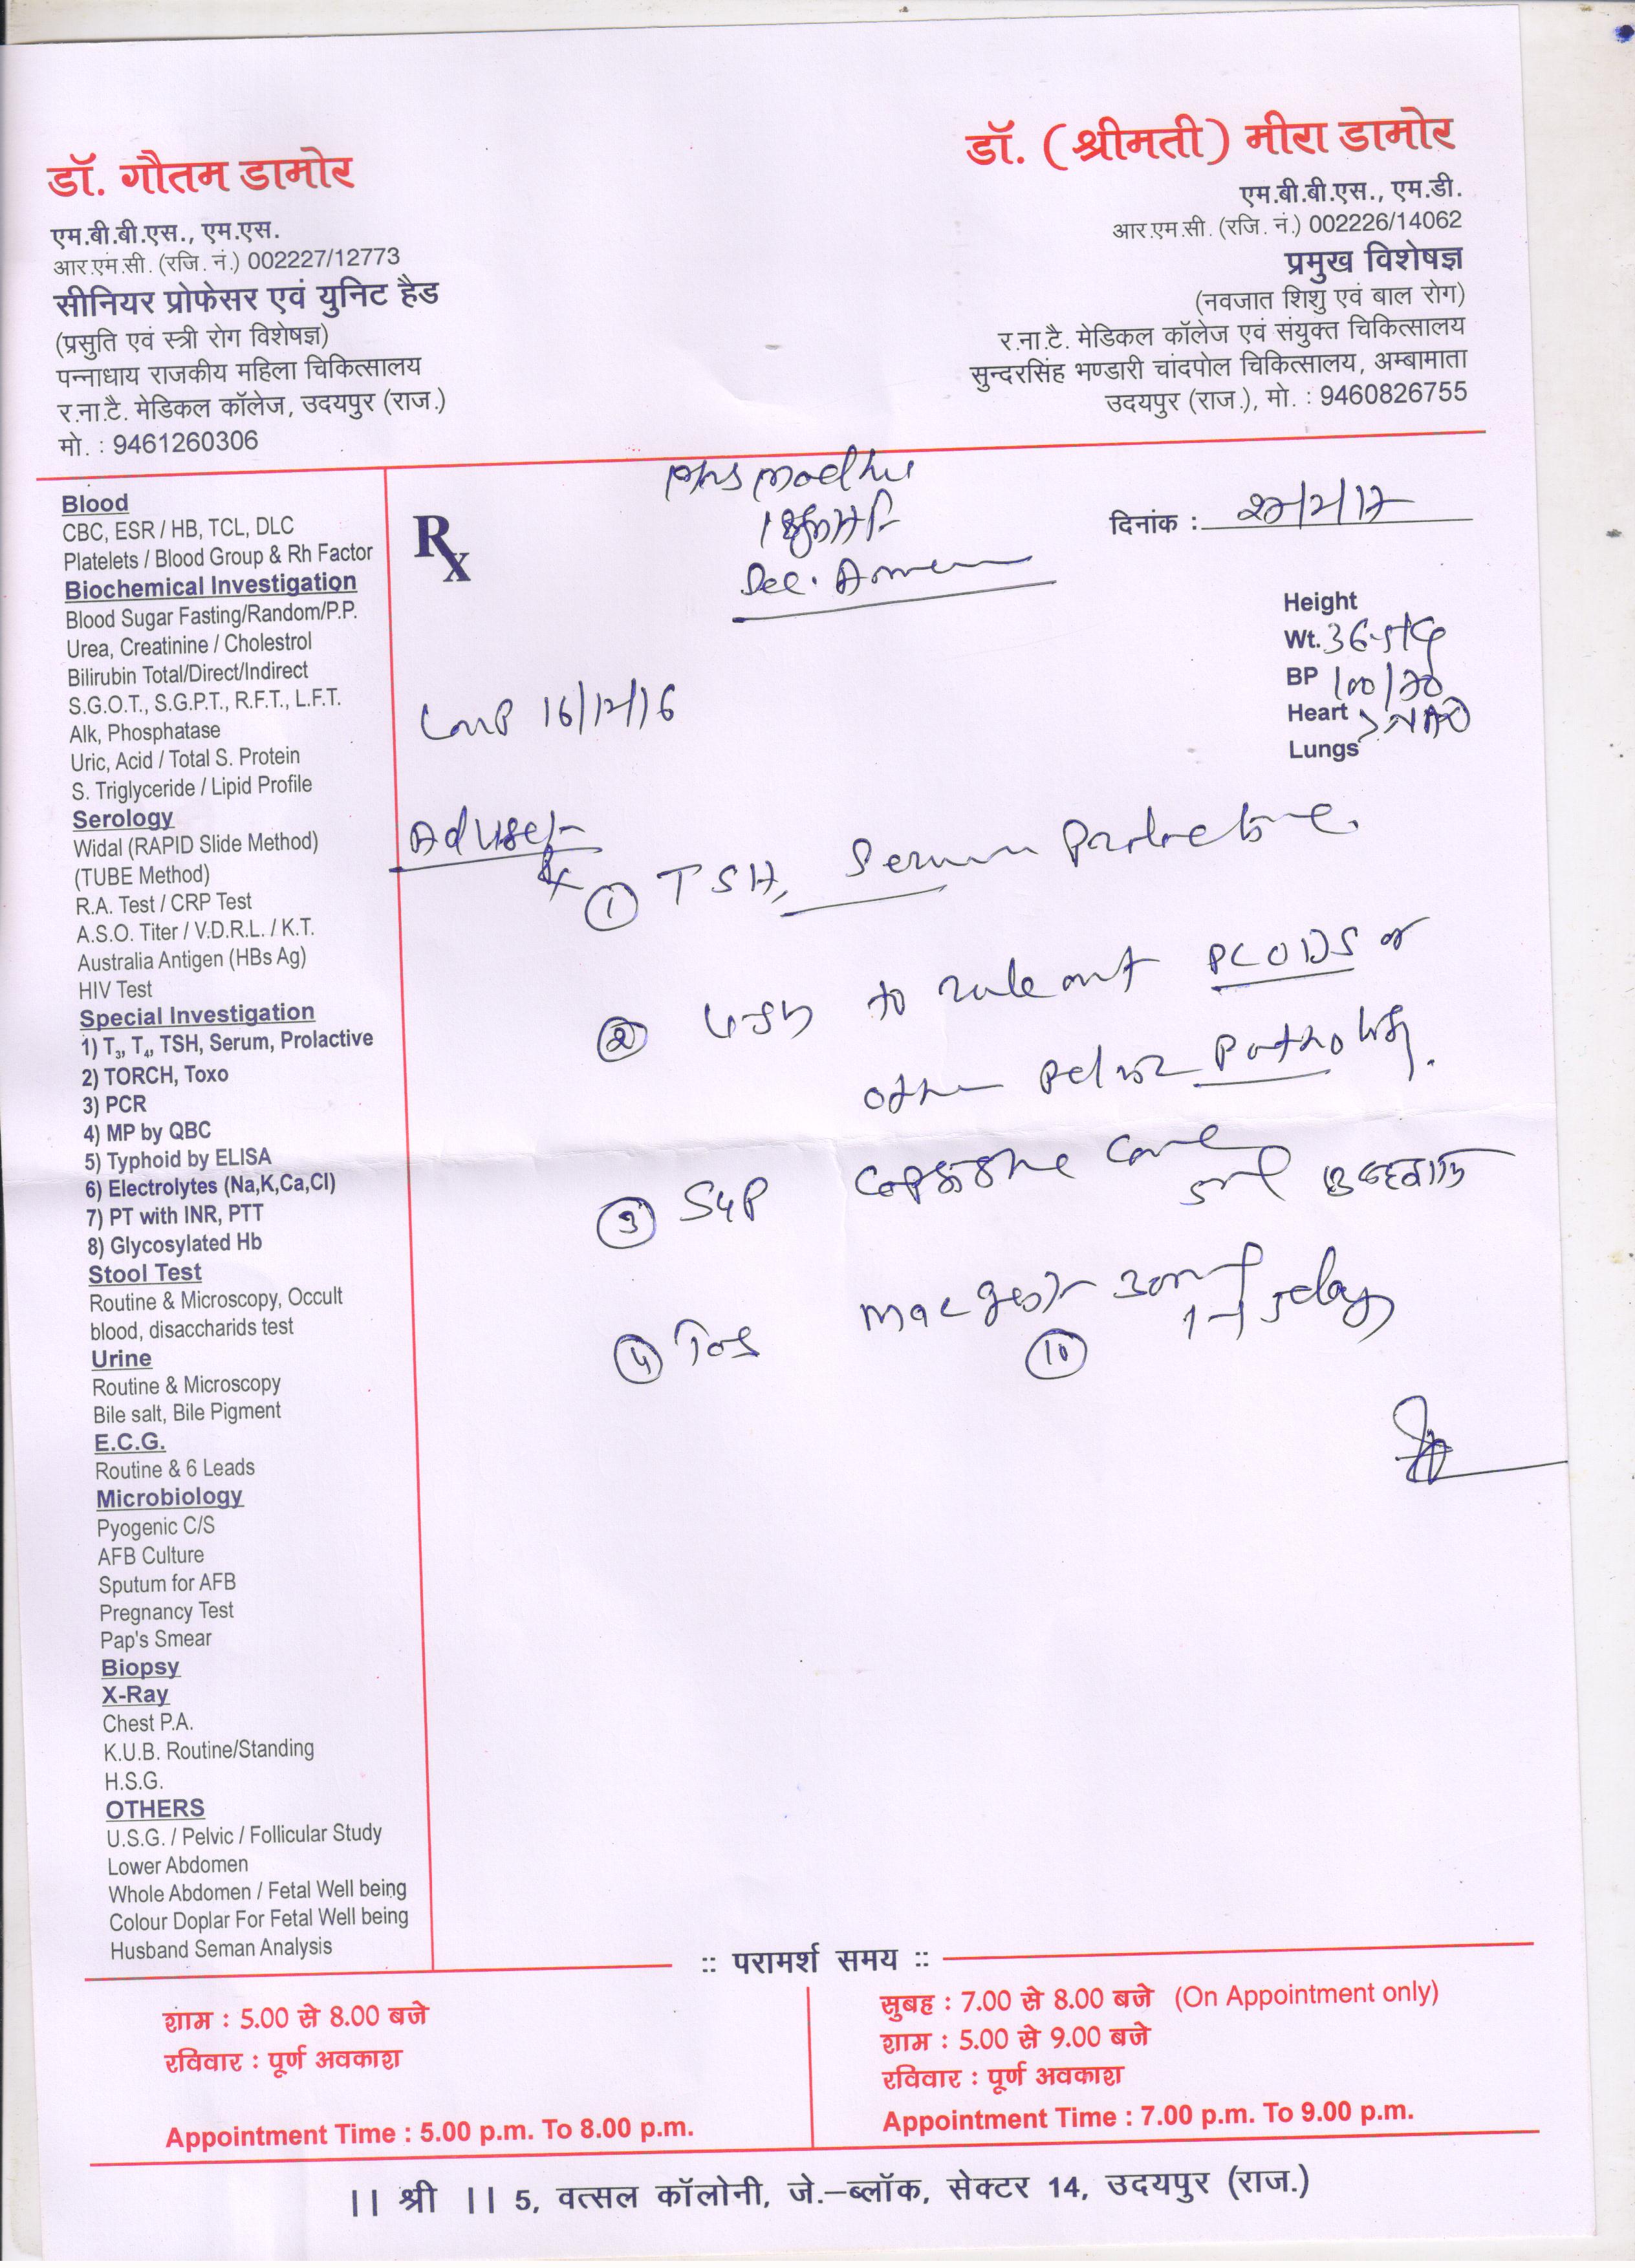 डॉ. गौतम डामोर
एम.बी.बी.एस., एम.एस.
आर.एम.सी. (रजि. नं.) 002227/12773
सीनियर प्रोफेसर एवं युनिट हैड
(प्रसुति एवं स्त्री रोग विशेषज्ञ)
पन्नाधाय राजकीय महिला चिकित्सालय
र.ना.टै. मेडिकल कॉलेज, उदयपुर (राज.)
मो. : 9461260306
डॉ. (श्रीमती) मीरा डामोर
एम.बी.बी.एस., एम.डी.
आर.एम.सी. (रजि. नं.) 002226/14062
प्रमुख विशेषज्ञ
(नवजात शिशु एवं बाल रोग)
र.ना.टै. मेडिकल कॉलेज एवं संयुक्त चिकित्सालय
सुन्दरसिंह भण्डारी चांदपोल चिकित्सालय, अम्बामाता
उदयपुर (राज.), मो. : 9460826755
Blood
CBC, ESR / HB, TCL, DLC
Platelets / Blood Group & Rh Factor
Biochemical Investigation
Blood Sugar Fasting/Random/P.P.
Urea, Creatinine / Cholestrol
Bilirubin Total/Direct/Indirect
S.G.O.T., S.G.P.T., R.F.T., L.F.T.
Alk, Phosphatase
Uric, Acid / Total S. Protein
S. Triglyceride / Lipid Profile
Serology
Widal (RAPID Slide Method)
(TUBE Method)
R.A. Test / CRP Test
A.S.O. Titer / V.D.R.L. / K.T.
Australia Antigen (HBs Ag)
HIV Test
Special Investigation
1) T₃, T₄, TSH, Serum, Prolactive
2) TORCH, Toxo
3) PCR
4) MP by QBC
5) Typhoid by ELISA
6) Electrolytes (Na,K,Ca,Cl)
7) PT with INR, PTT
8) Glycosylated Hb
Stool Test
Routine & Microscopy, Occult
blood, disaccharids test
Urine
Routine & Microscopy
Bile salt, Bile Pigment
E.C.G.
Routine & 6 Leads
Microbiology
Pyogenic C/S
AFB Culture
Sputum for AFB
Pregnancy Test
Pap's Smear
Biopsy
X-Ray
Chest P.A.
K.U.B. Routine/Standing
H.S.G.
OTHERS
U.S.G. / Pelvic / Follicular Study
Lower Abdomen
Whole Abdomen / Fetal Well being
Colour Doplar For Fetal Well being
Husband Seman Analysis
Rx
Madhu
दिनांक :
Sec.
Height
Wt. 36
BP 100/70
Heart NAD
Lungs
LMP 16/12/16
Advise
① TSH, Serum Prolactine
② USG to rule out PCODS or
other Pelvic Pathology.
③ Syp
④ Tab
⑩
:: परामर्श समय ::
शाम : 5.00 से 8.00 बजे
रविवार : पूर्ण अवकाश
Appointment Time : 5.00 p.m. To 8.00 p.m.
सुबह : 7.00 से 8.00 बजे (On Appointment only)
शाम : 5.00 से 9.00 बजे
रविवार : पूर्ण अवकाश
Appointment Time : 7.00 p.m. To 9.00 p.m.
|| श्री || 5, वत्सल कॉलोनी, जे.–ब्लॉक, सेक्टर 14, उदयपुर (राज.)